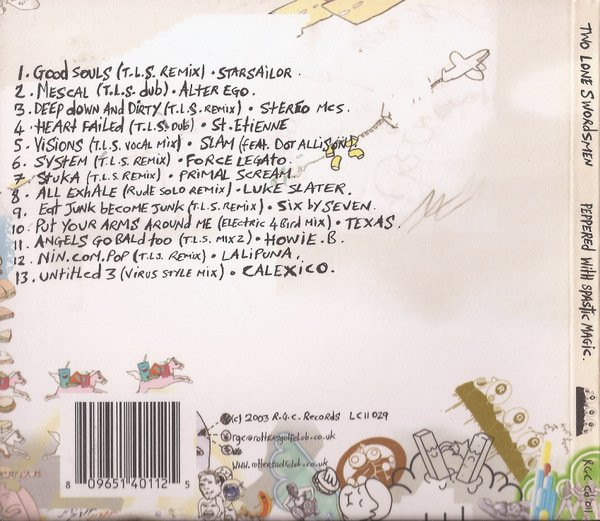 1. Good Souls (T.L.S. Remix) • Starsailor.
2. Mescal (T.L.S. dub) • Alter Ego.
3. Deep down And Dirty (T.L.S. remix) • Stereo Mcs.
4. Heart Failed (T.L.S. Dub) • St. Etienne
5. Visions (T.L.S. Vocal Mix) • Slam (feat. Dot Allison)
6. System (T.L.S. Remix) • Force Legato.
7. Stuka (T.L.S. Remix) • Primal Scream.
8. All Exhale (Rude Solo Remix) • Luke Slater.
9. Eat Junk become Junk (T.L.S. Remix) • Six by Seven.
10. Put Your Arms Around Me (Electric 4 Bird Mix) • Texas.
11. Angels go Bald too (T.L.S. Mix 2) • Howie. B.
12. Nin. Com. Pop (T.L.S. Remix) • Lalipuna.
13. Untitled 3 (Virus Style Mix) • Calexico.
(c) 2003 R.G.C. Records LC 11029
rgc@rottersgolfclub.co.uk
www.rottersgolfclub.co.uk
8 09651 40112 5
Two Lone Swordsmen Peppered with spastic magic.
RGC CD 011